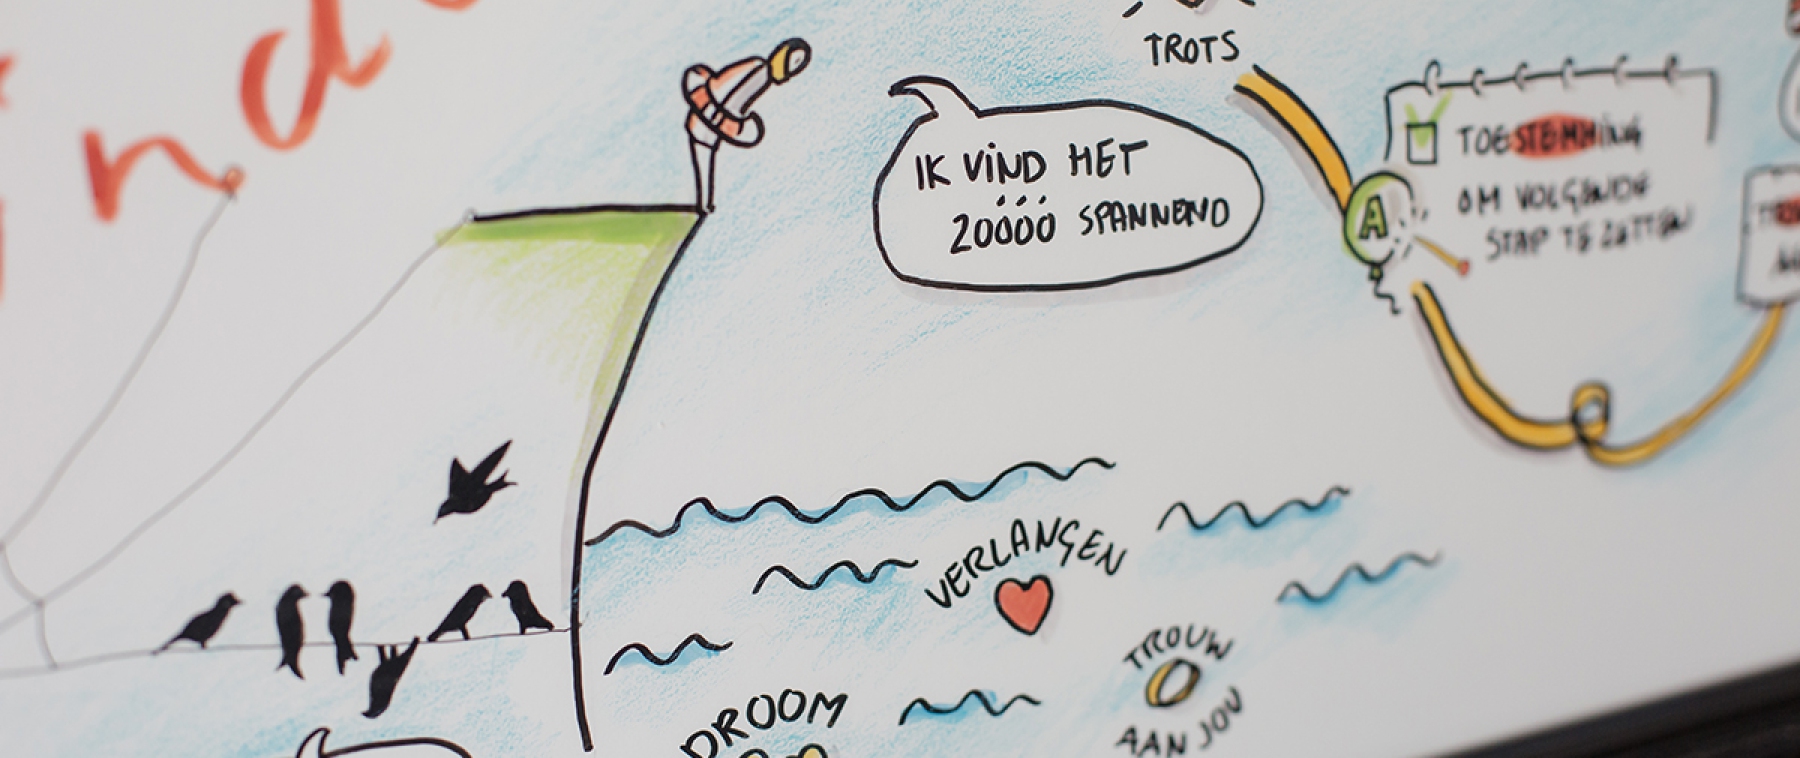 TROTS
IK VIND HET
ZOÓÓÓ SPANNEND
A
TOESTEMMING
OM VOLGENDE
STAP TE ZETTEN
VERLANGEN
TROUW
AAN JOU
DROOM